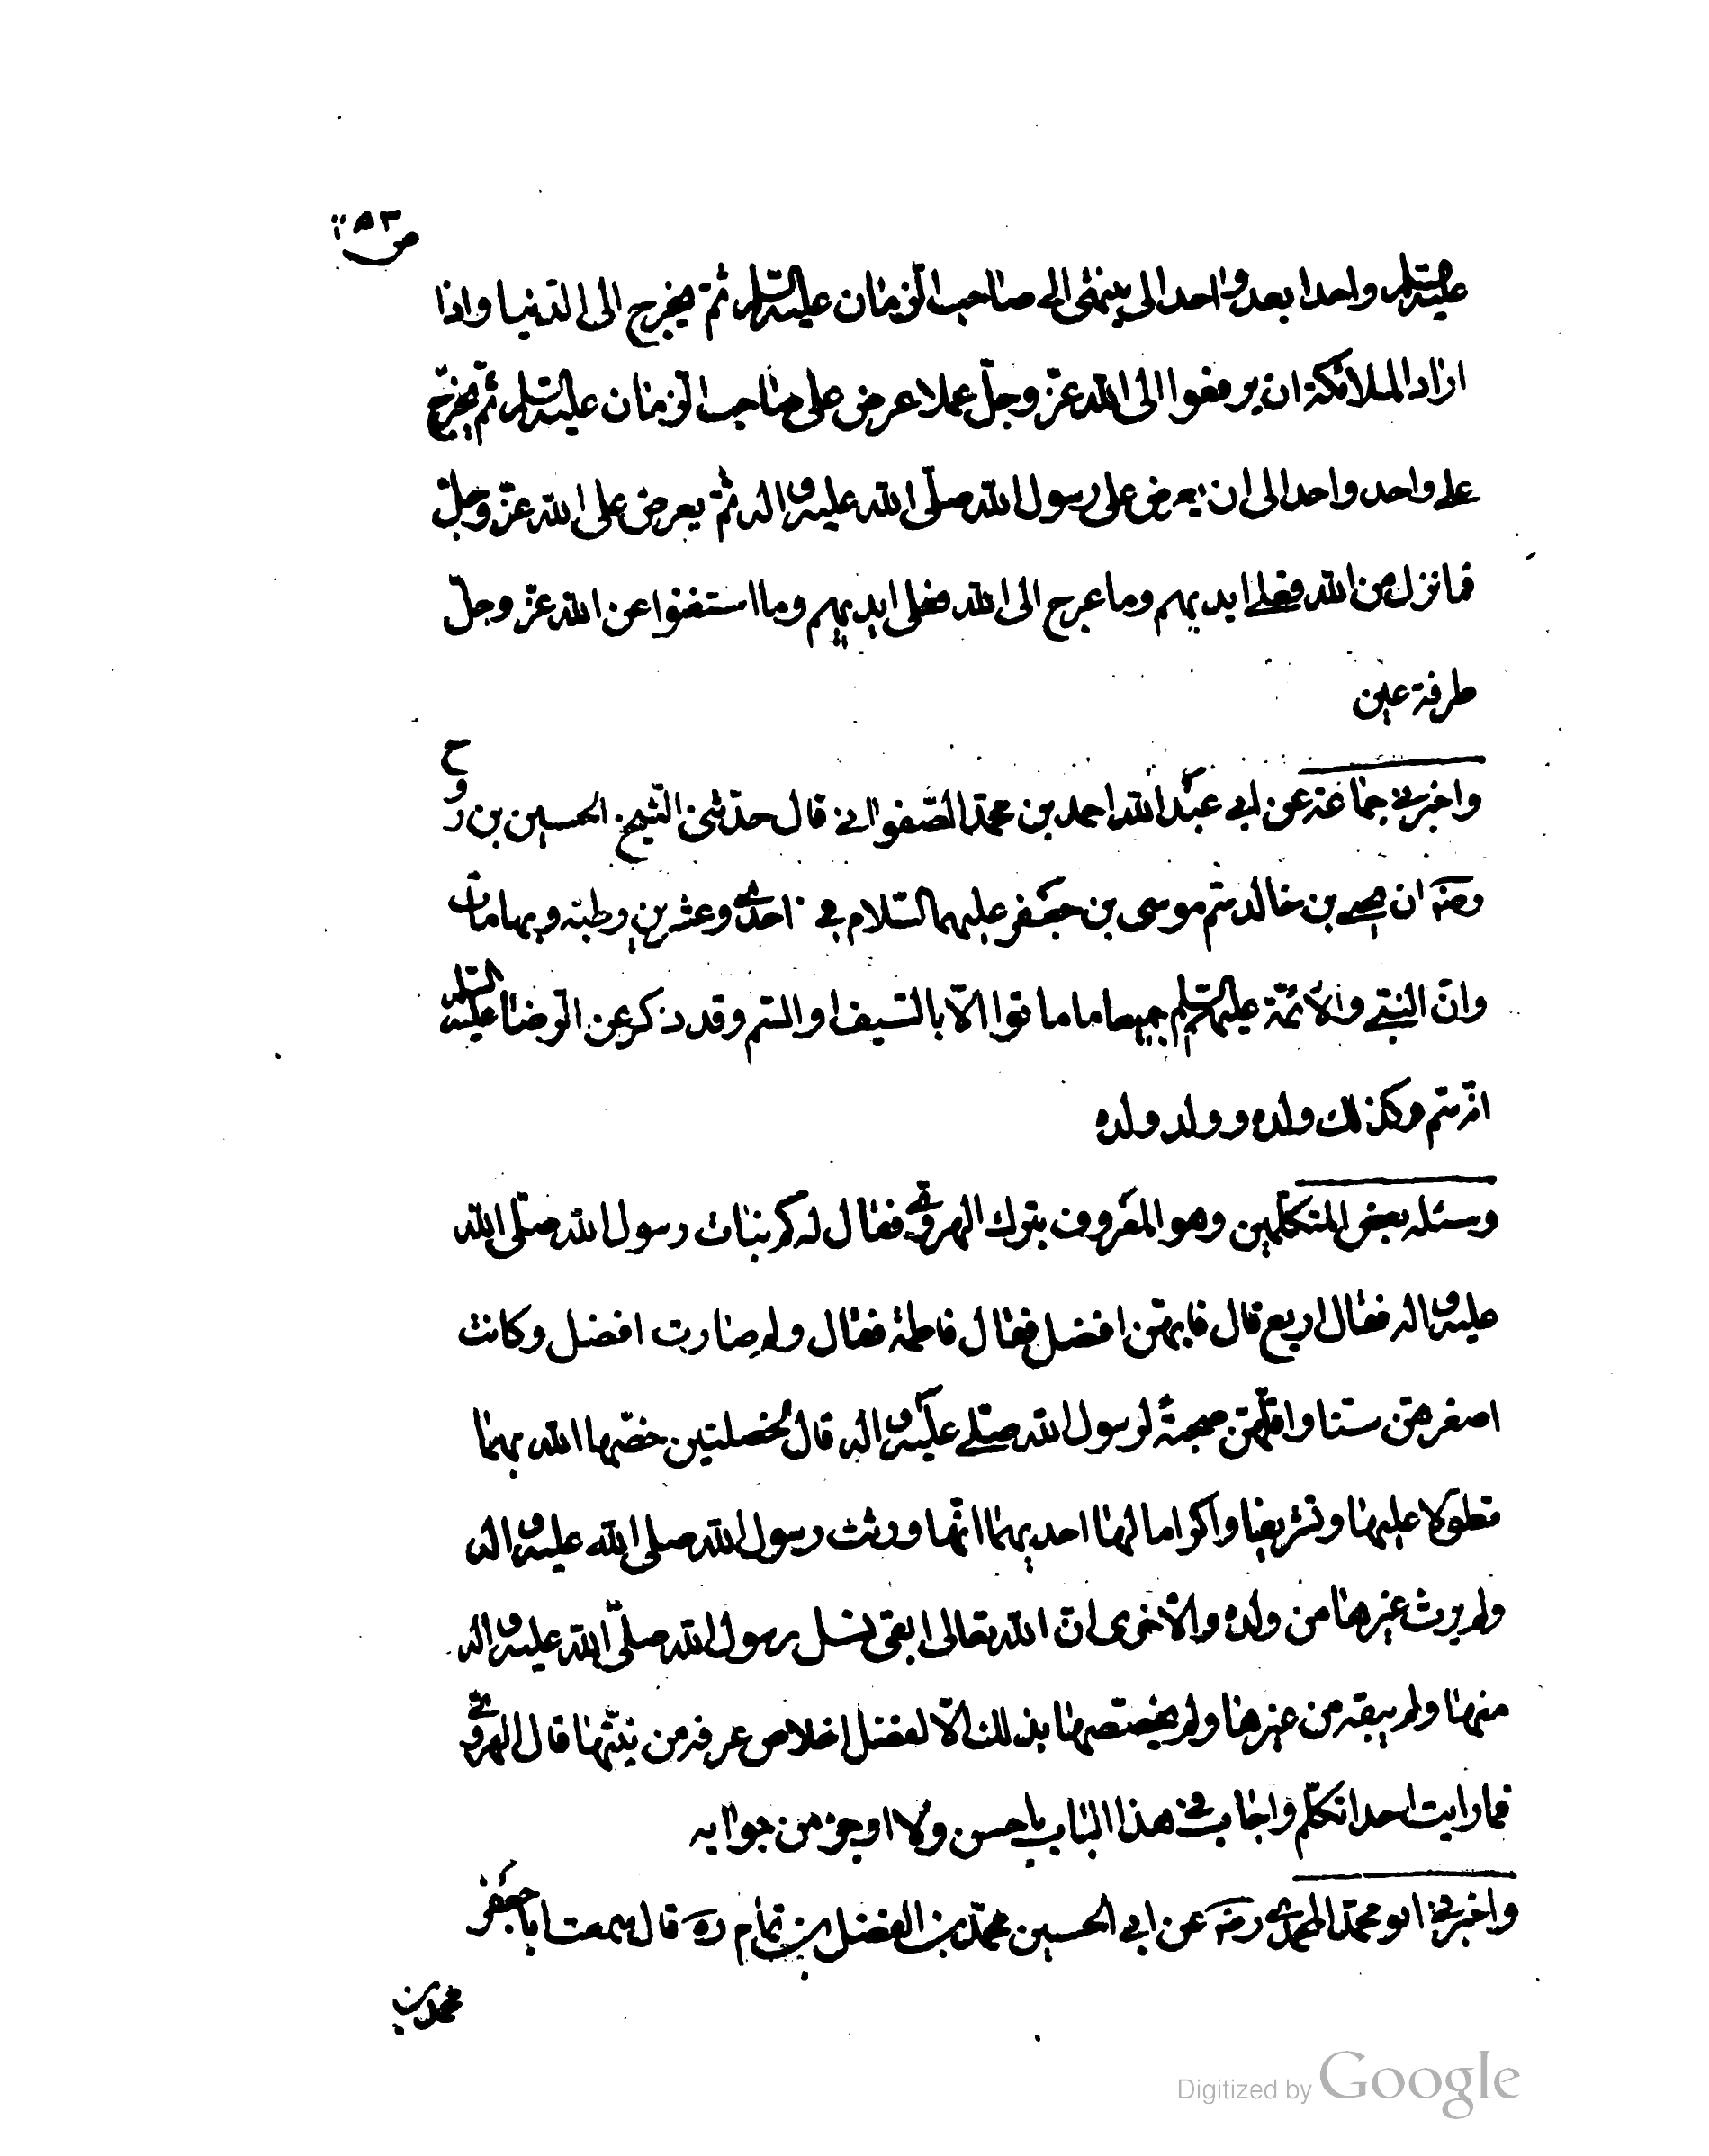 ص ٢٥٣
عليه السلام واحدا بعد واحد الى ينتهى الى صاحب الزمان عليه السلام ثم يخرج الى الدنيا واذا
اراد الملائكة ان يرفعوا الى الله عزّ وجلّ عملا عرض على صاحب الزمان عليه السلام ثم يخرج
على واحد واحد الى ان يعرض على رسول الله صلّى الله عليه واله ثمّ يعرض على الله عزّ وجلّ
فما نزل من الله فعلى ايديهم وما عرج الى الله فعلى ايديهم وما استغنوا عن الله عزّ وجلّ
طرفة عين
واخبرنى جماعة عن ابى عبد الله احمد بن محمد الصّفوانى قال حدّثنى الشّيخ الحسين بن روح
رضه ان يحيى بن خالد سم موسى بن جعفر عليهما السّلام فى احدى وعشرين رطبة وبها مات
وانّ النبىّ والائمّة عليهم السلم جميعا ما ماتوا الاّ بالسّيف او السّم وقد ذكر عن الرّضا عليه السلم
انه سمّ وكذلك ولده وولد ولده
وسئله بعض المتكلّمين وهو المعروف بترك الهروى فقال له كم بنات رسول الله صلّى الله
عليه واله فقال اربع قال فايهنّ افضل فقال فاطمة فقال ولم صارت افضل وكانت
اصغرهنّ سنّا واقلّهنّ صحبة لرسول الله صلى عليه واله قال لخصلتين خصّها الله بهما
تطولا عليها وتشريفا واكراما لها احديهما انّها ورثت رسول الله صلى الله عليه واله
ولم يرث غيرها من ولده والاخرى انّ الله تعالى ابقى نسل رسول الله صلّى الله عليه واله
منها ولم يبقه من غيرها ولم يخصصها بذلك الاّ لفضل اخلاص عرفه من نيّتها قال الهروى
فما رايت احدا تكلّم واجاب فى هذا الباب باحسن ولا اوجز من جوابه
واخبرنى ابو محمّد المحمدى رضه عن ابى الحسين محمّد بن الفضل بن تمام ره قال سمعت ابا جعفر
محمد بن
Digitized by Google